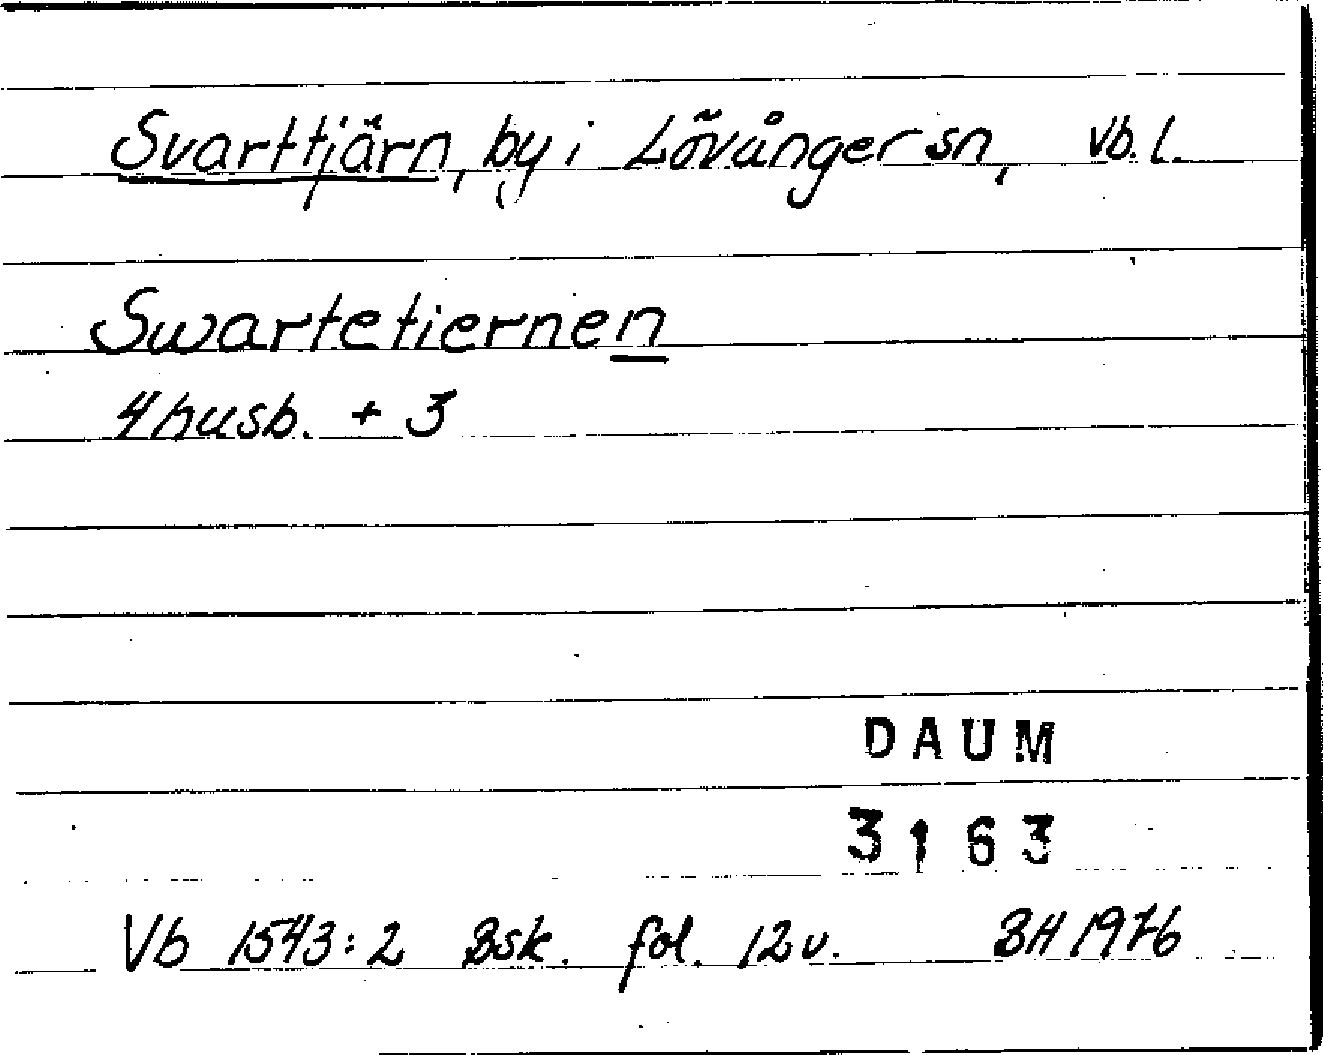 Svarttjärn, by i Lövånger sn, Vb. l.
Swartetiernen
4 husb. + 3
DAUM
3163
Vb 1543:2 Bsk. fol. 12v. BH 1976